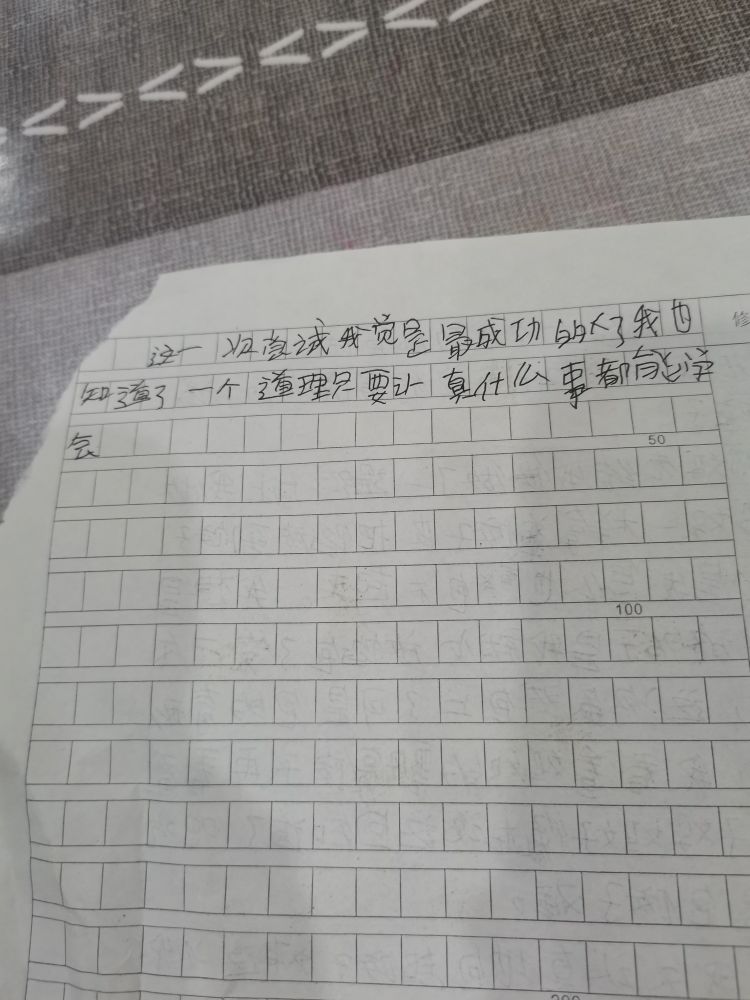 这一次尝试我觉是最成功的人了我也
知道了一个道理只要认真什么事都能学
会
50
100
200
修